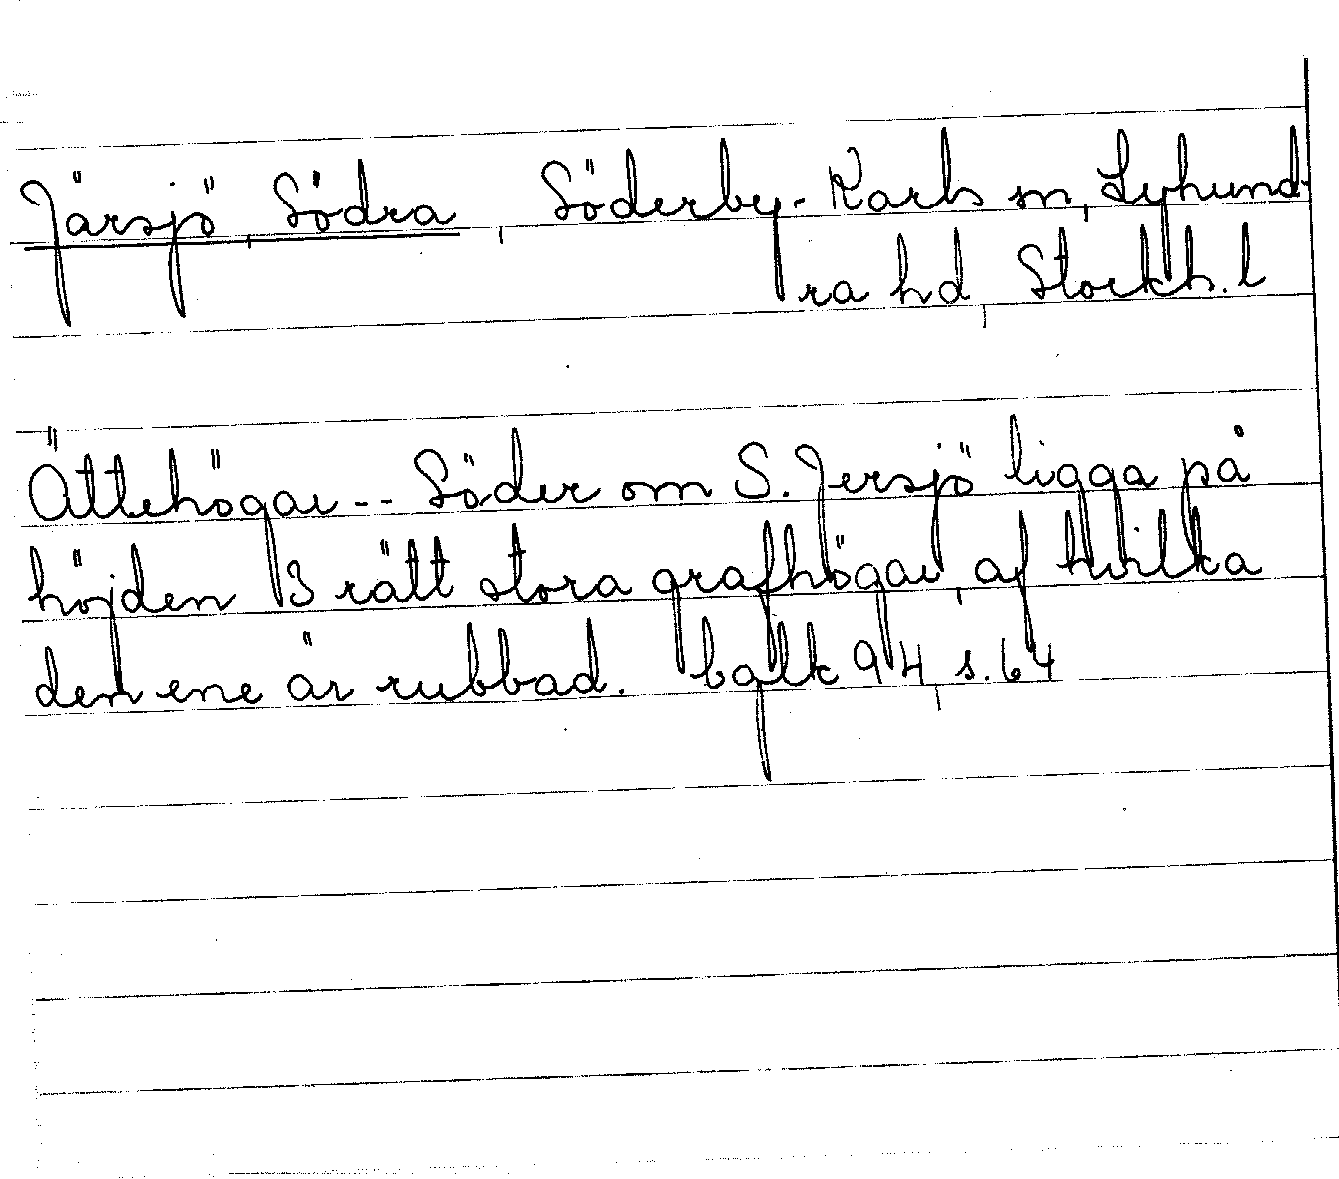 Järsjö, Södra, Söderby-Karls sn, Lyhund-
ra hd, Stockh. l
Ättehögar -- Söder om S. Jersjö ligga på
höjden 3 rätt stora grafhögar, af hvilka
den ene är rubbad. 94, s. 64